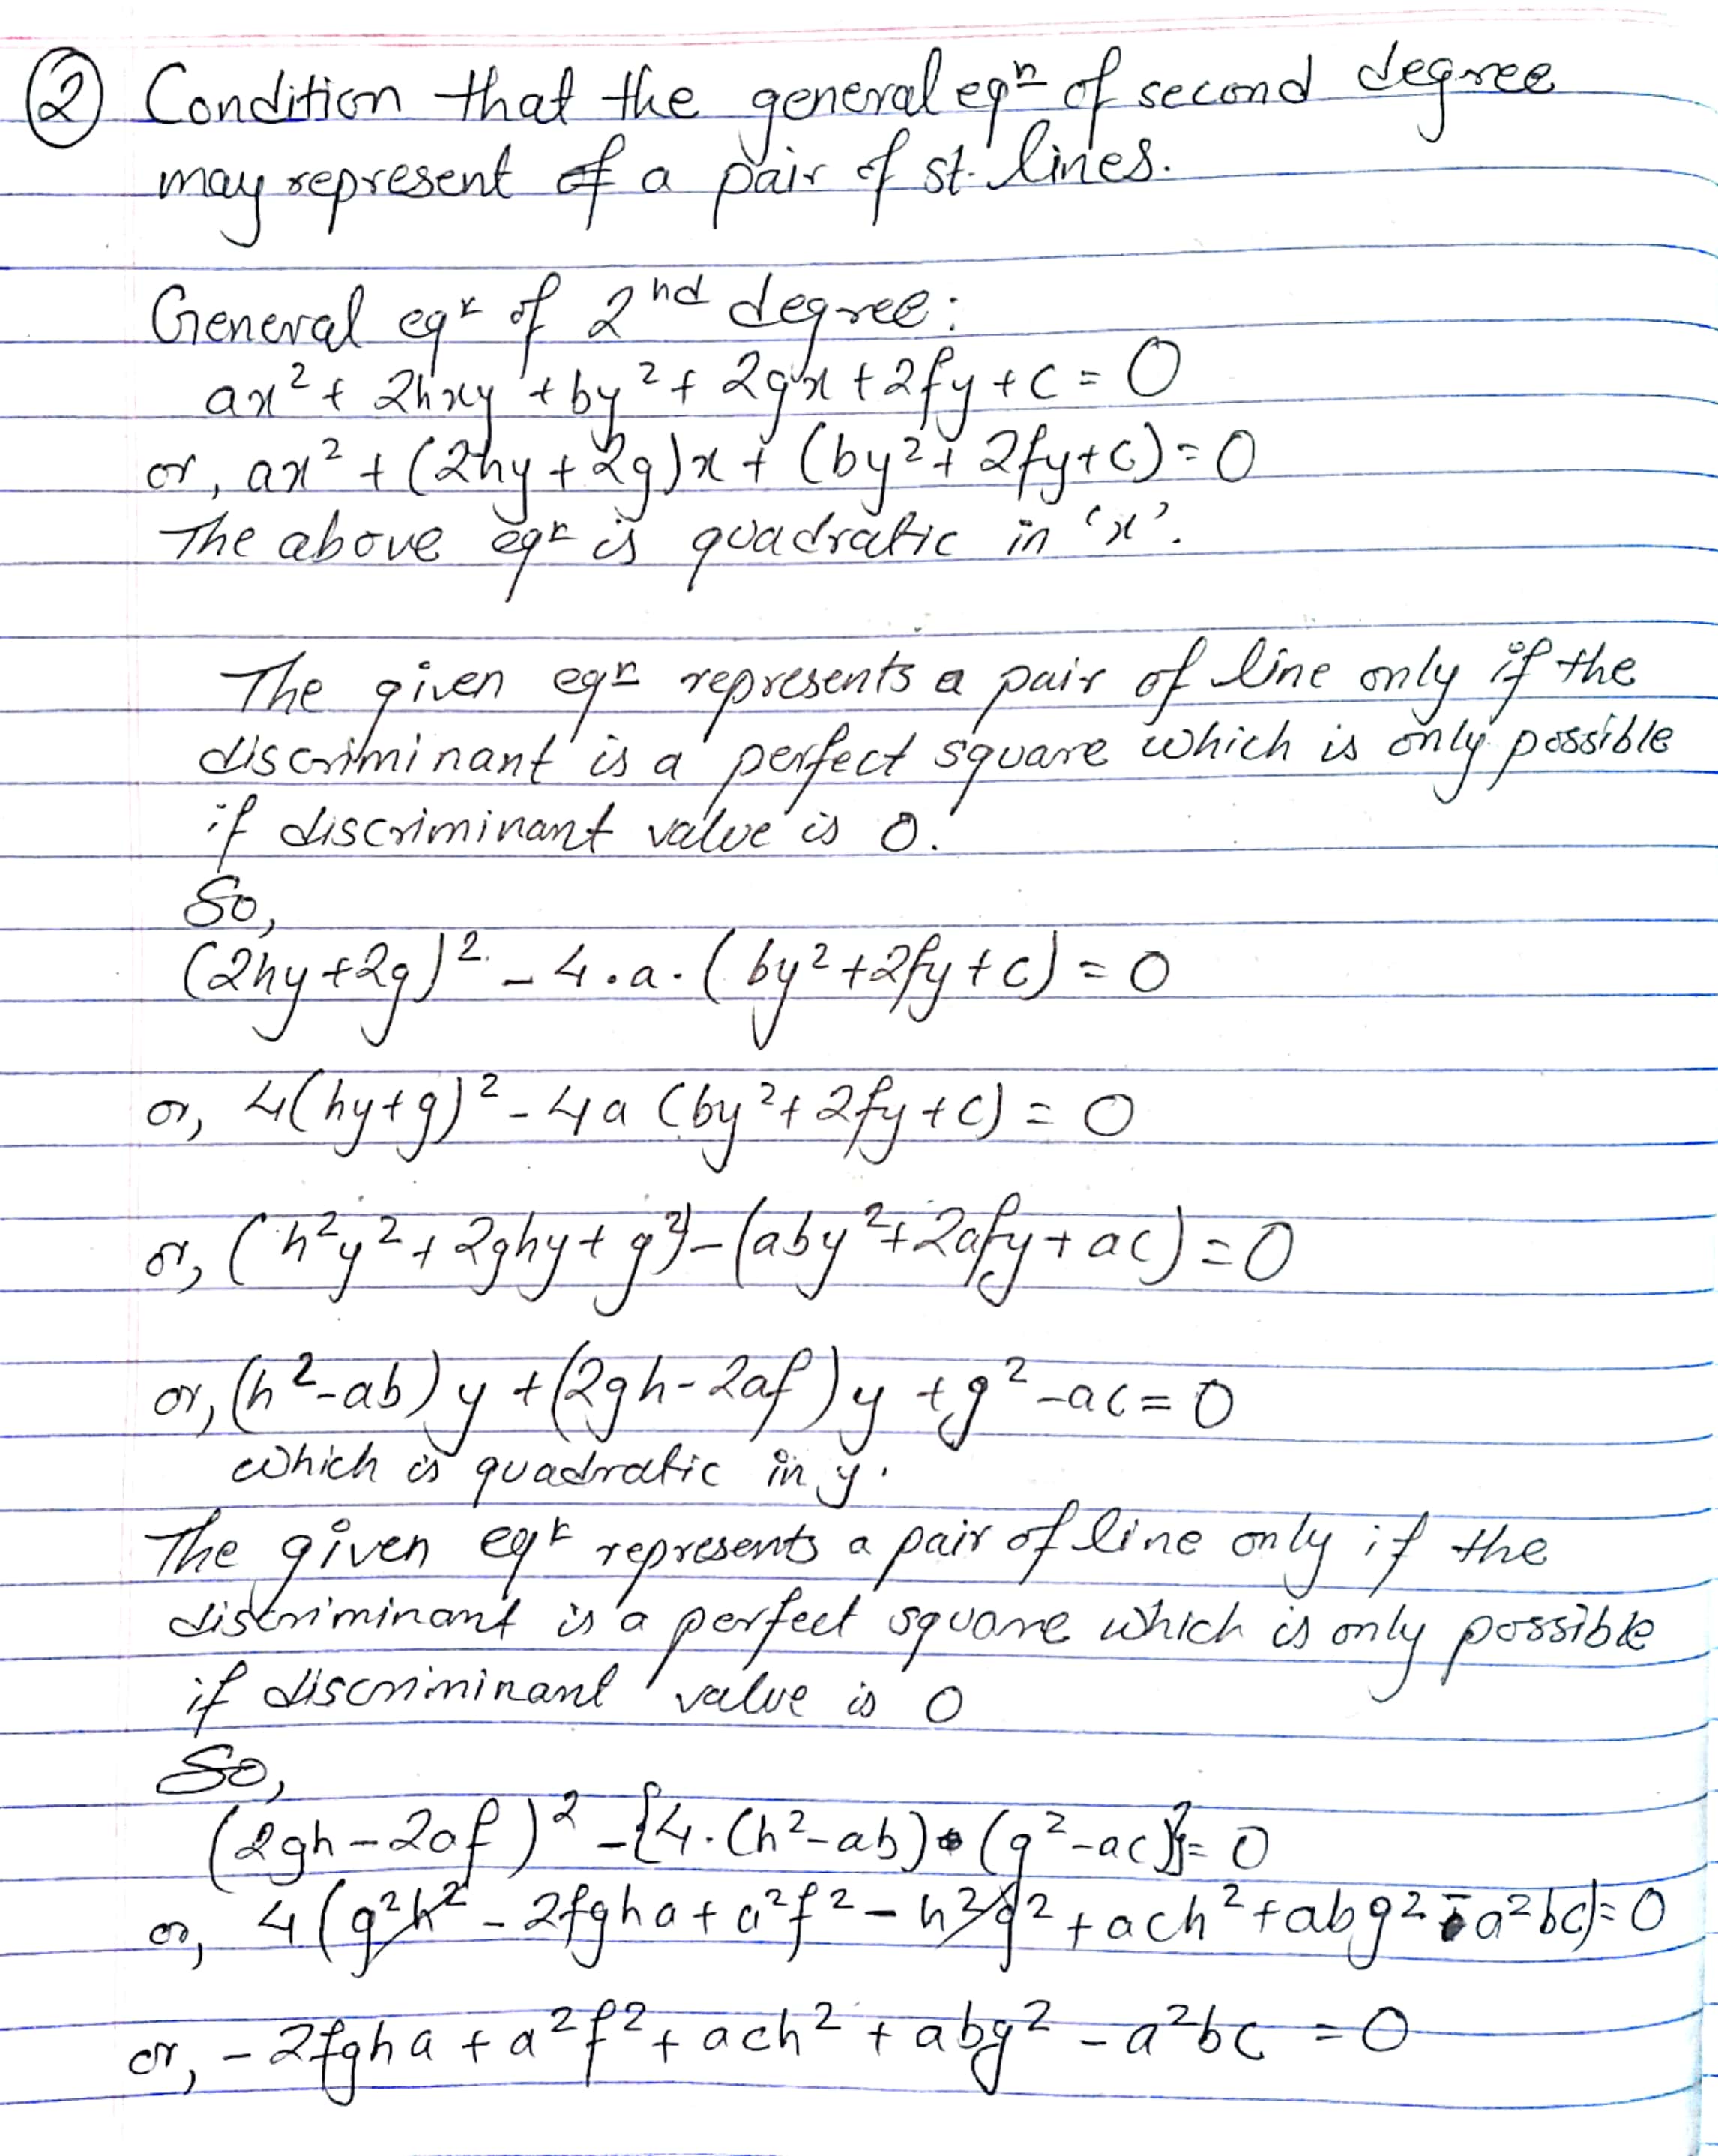 ② Condition that the general eqⁿ of second degree
may represent of a pair of st. lines.
General eqⁿ of 2nd degree:
ax² + 2hxy + by² + 2gx + 2fy + c = 0
or, ax² + (2hy + 2g)x + (by² + 2fy + c) = 0
The above eqⁿ is quadratic in 'x'.
The given eqⁿ represents a pair of line only if the
discriminant is a perfect square which is only possible
if discriminant value is 0.
So,
(2hy + 2g)² - 4.a.(by² + 2fy + c) = 0
or, 4(hy+g)² - 4a (by² + 2fy + c) = 0
or, (h²y² + 2ghy + g²) - (aby² + 2afy + ac) = 0
or, (h² - ab) y + (2gh - 2af) y + g² - ac = 0
which is quadratic in y.
The given eqⁿ represents a pair of line only if the
discriminant is a perfect square which is only possible
if discriminant value is 0
So,
(2gh - 2af)² - {4.(h² - ab) • (g² - ac)} = 0
or, 4(g²h² - 2fgha + a²f² - h²g² + ach² + abg² - a²bc) = 0
or, - 2fgha + a²f² + ach² + abg² - a²bc = 0